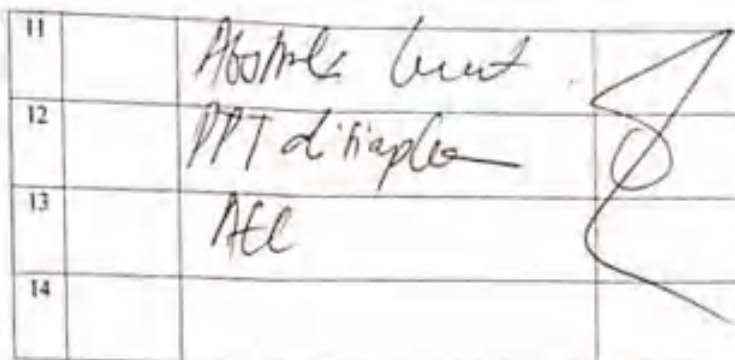 11 Abstrak buat
12 PPT disiapkan
13 ACC
14